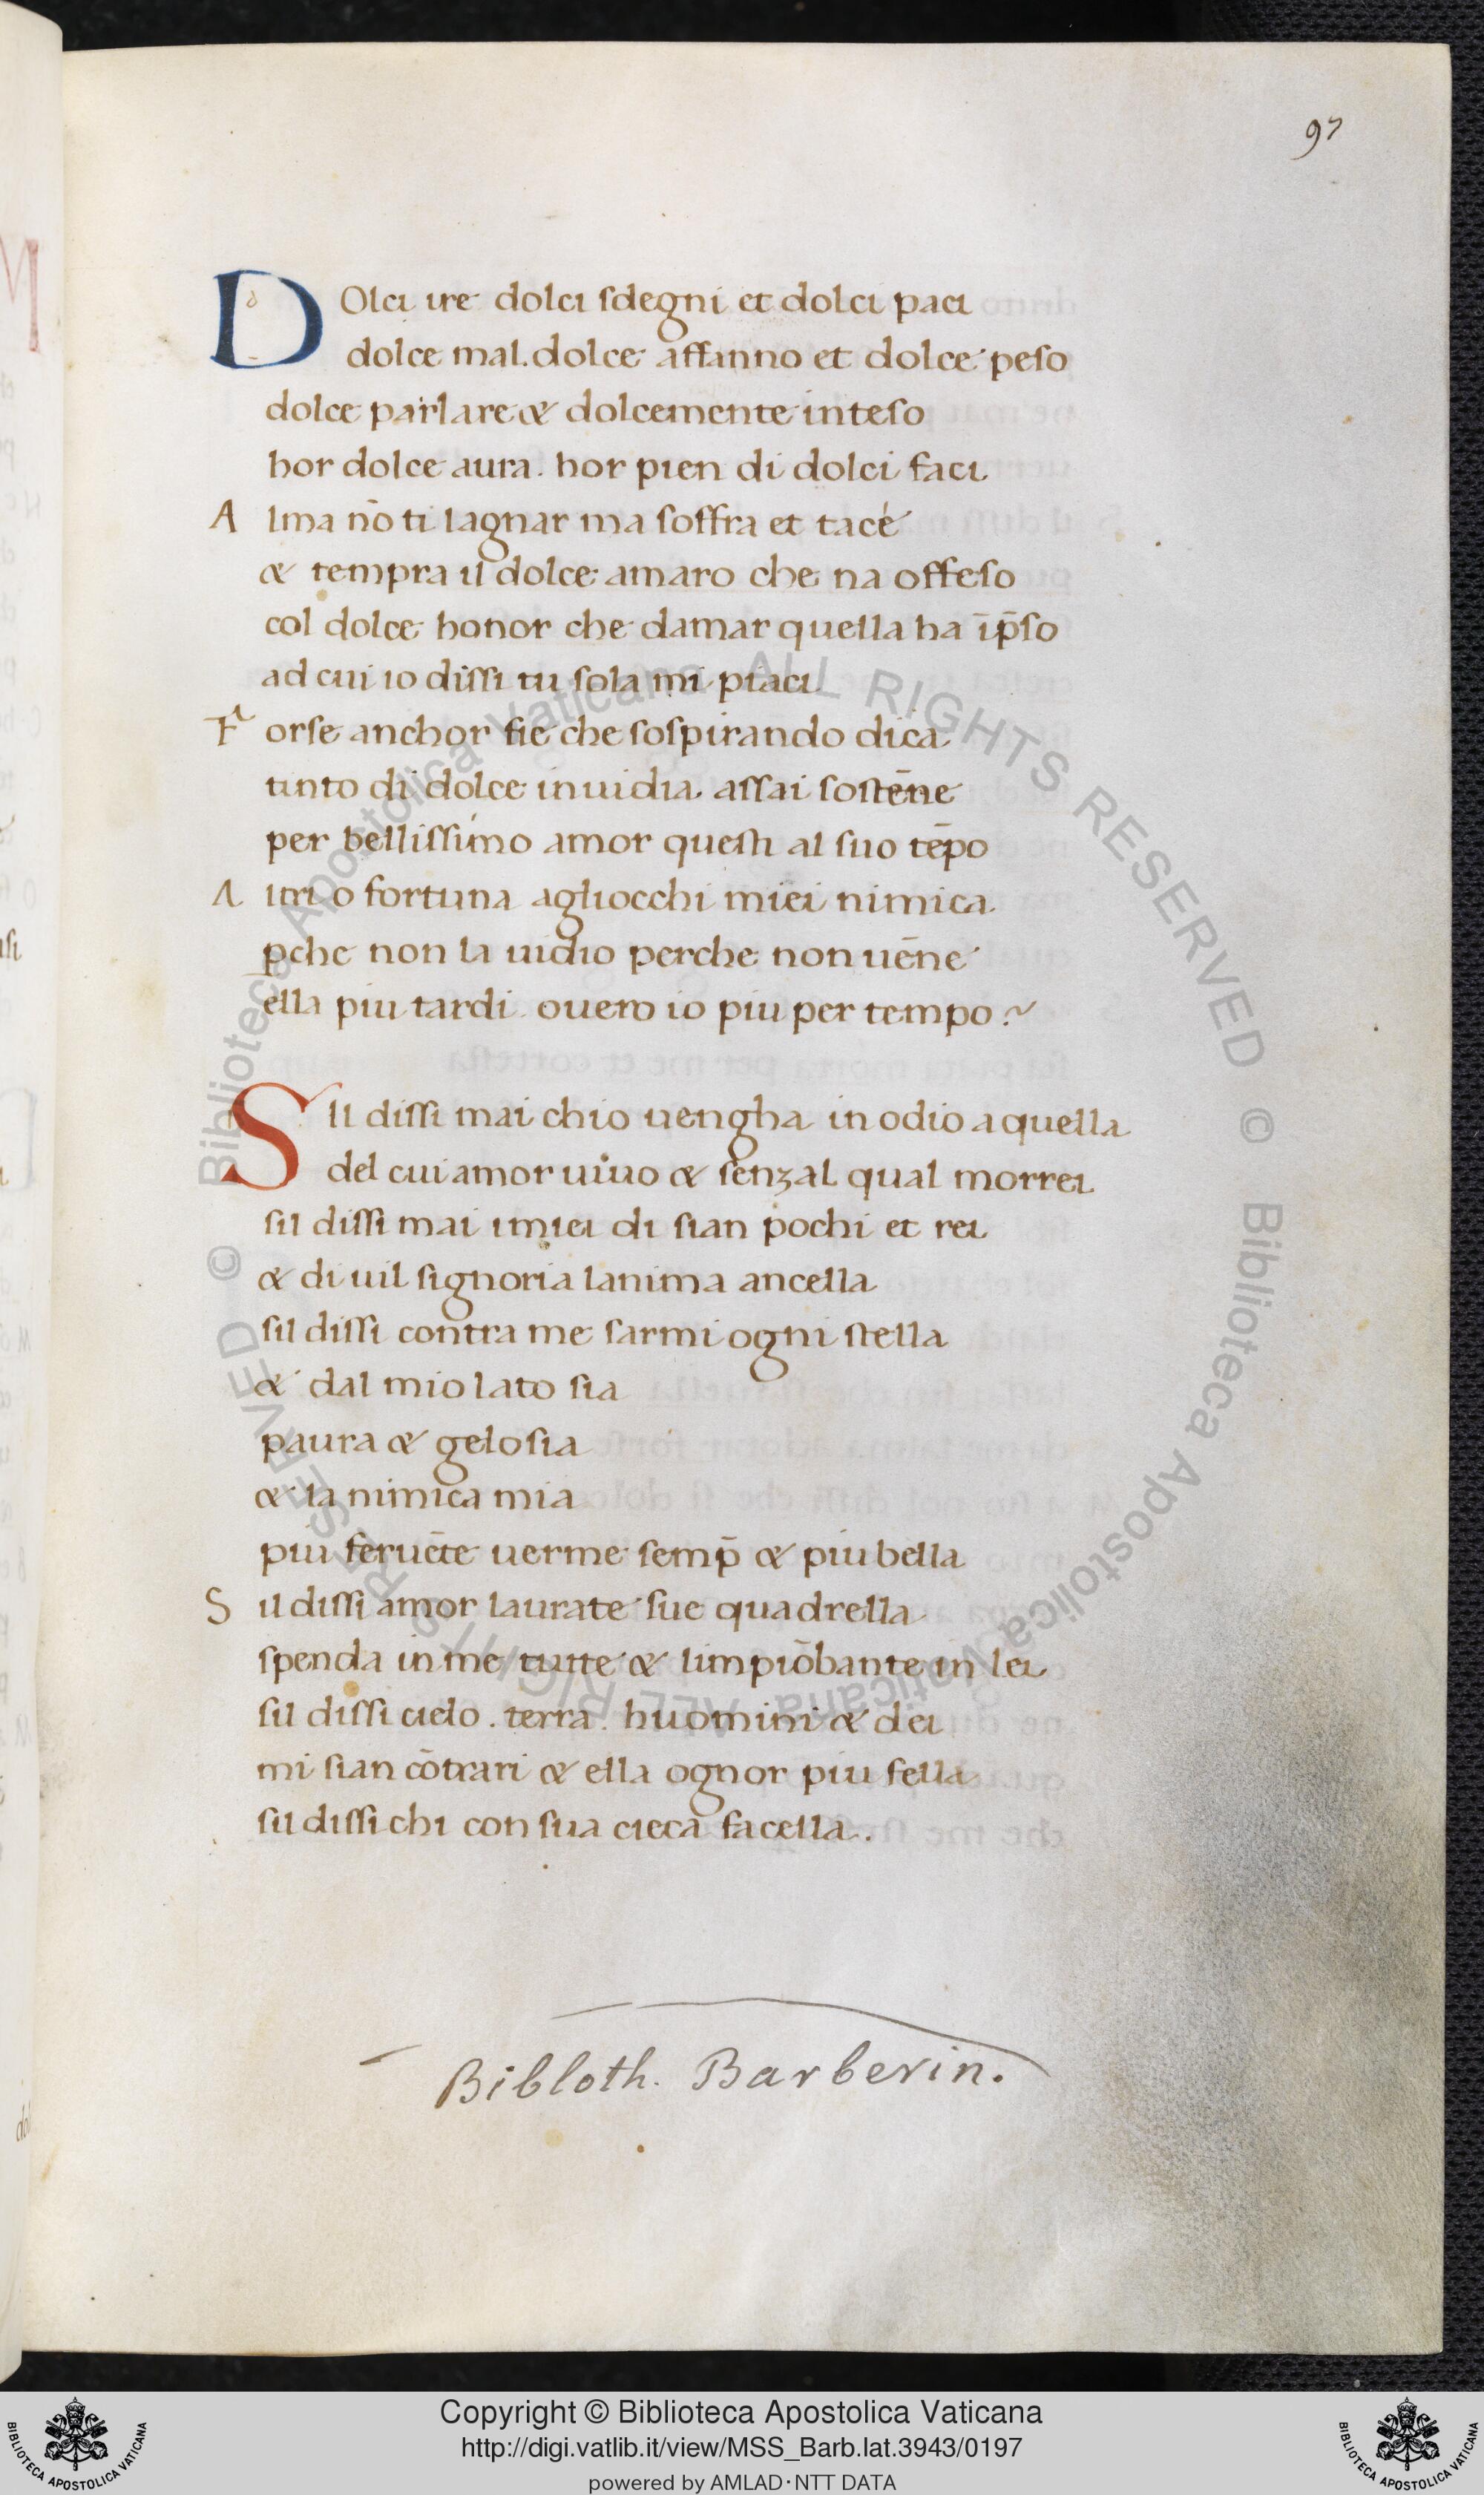 97
DOlci ire dolci sdegni et dolci paci
dolce mal. dolce affanno et dolce peso
dolce parlare & dolcemente inteso
hor dolce aura. hor pien di dolci faci
Alma nō ti lagnar ma soffra et tace
& tempra il dolce amaro che na offeso
col dolce honor che damar quella ha īp̄so
ad cui io dissi tu sola mi piaci
Forse anchor fie che sospirando dica
tinto di dolce inuidia. assai sostēne
per bellissimo amor questi al suo tēpo
Altri o fortuna agliocchi miei nimica
pche non la uidio perche non uēne
ella piu tardi. ouero io piu per tempo?
SIl dissi mai chio uengha in odio a quella
del cui amor uiuo & senzal qual morrei
sil dissi mai i miei di sian pochi et rei
& di uil signoria lanima ancella
sil dissi contra me sarmi ogni stella
& dal mio lato sia
paura & gelosia
& la nimica mia
piu feruēte uer me semp̄ & piu bella
Sil dissi amor laurate sue quadrella
spenda in me tutte & limpiōbante in lei
sil dissi cielo. terra. huomini & dei
mi sian cōtrari & ella ognor piu fella
sil dissi chi con sua cieca facella.
Bibloth. Barberin.
© Biblioteca Apostolica Vaticana ALL RIGHTS RESERVED © Biblioteca Apostolica Vaticana ALL RIGHTS RESERVED
Copyright © Biblioteca Apostolica Vaticana
http://digi.vatlib.it/view/MSS_Barb.lat.3943/0197
powered by AMLAD·NTT DATA
BIBLIOTECA APOSTOLICA VATICANA
BIBLIOTECA APOSTOLICA VATICANA